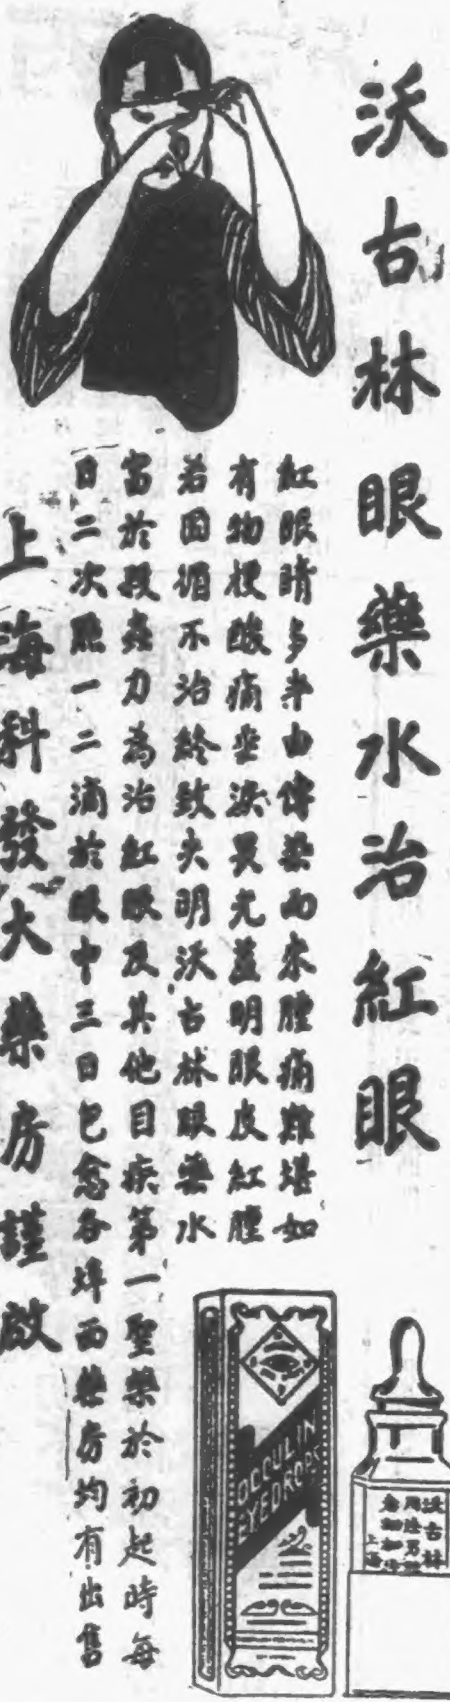 沃古林眼藥水治紅眼
紅眼睛多半由傳染而來腫痛難堪如
有物梗酸痛坐淚畏光羞明眼皮紅腫
若因循不治終致失明沃古林眼藥水
富於殺虫力為治紅眼及其他目疾第一聖藥於初起時每
日二次點一二滴於眼中三日包愈各埠西藥房均有出售
上海科發大藥房謹啟
OCCULIN
EYEDROPS
沃古林
上海